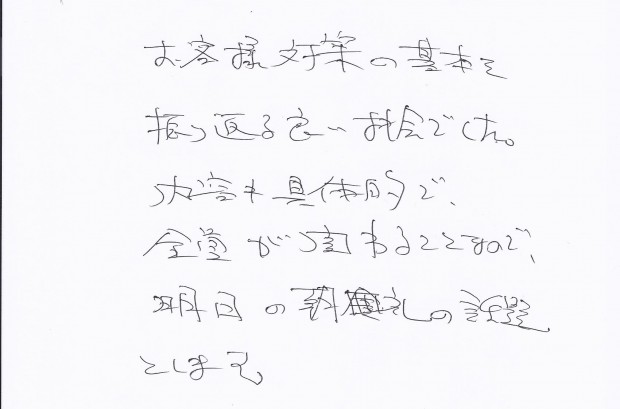 お客様対策の基本を
振り返る良い機会でした。
内容も具体的で、
全員が関わることですので、
明日の朝礼の課題
とします。